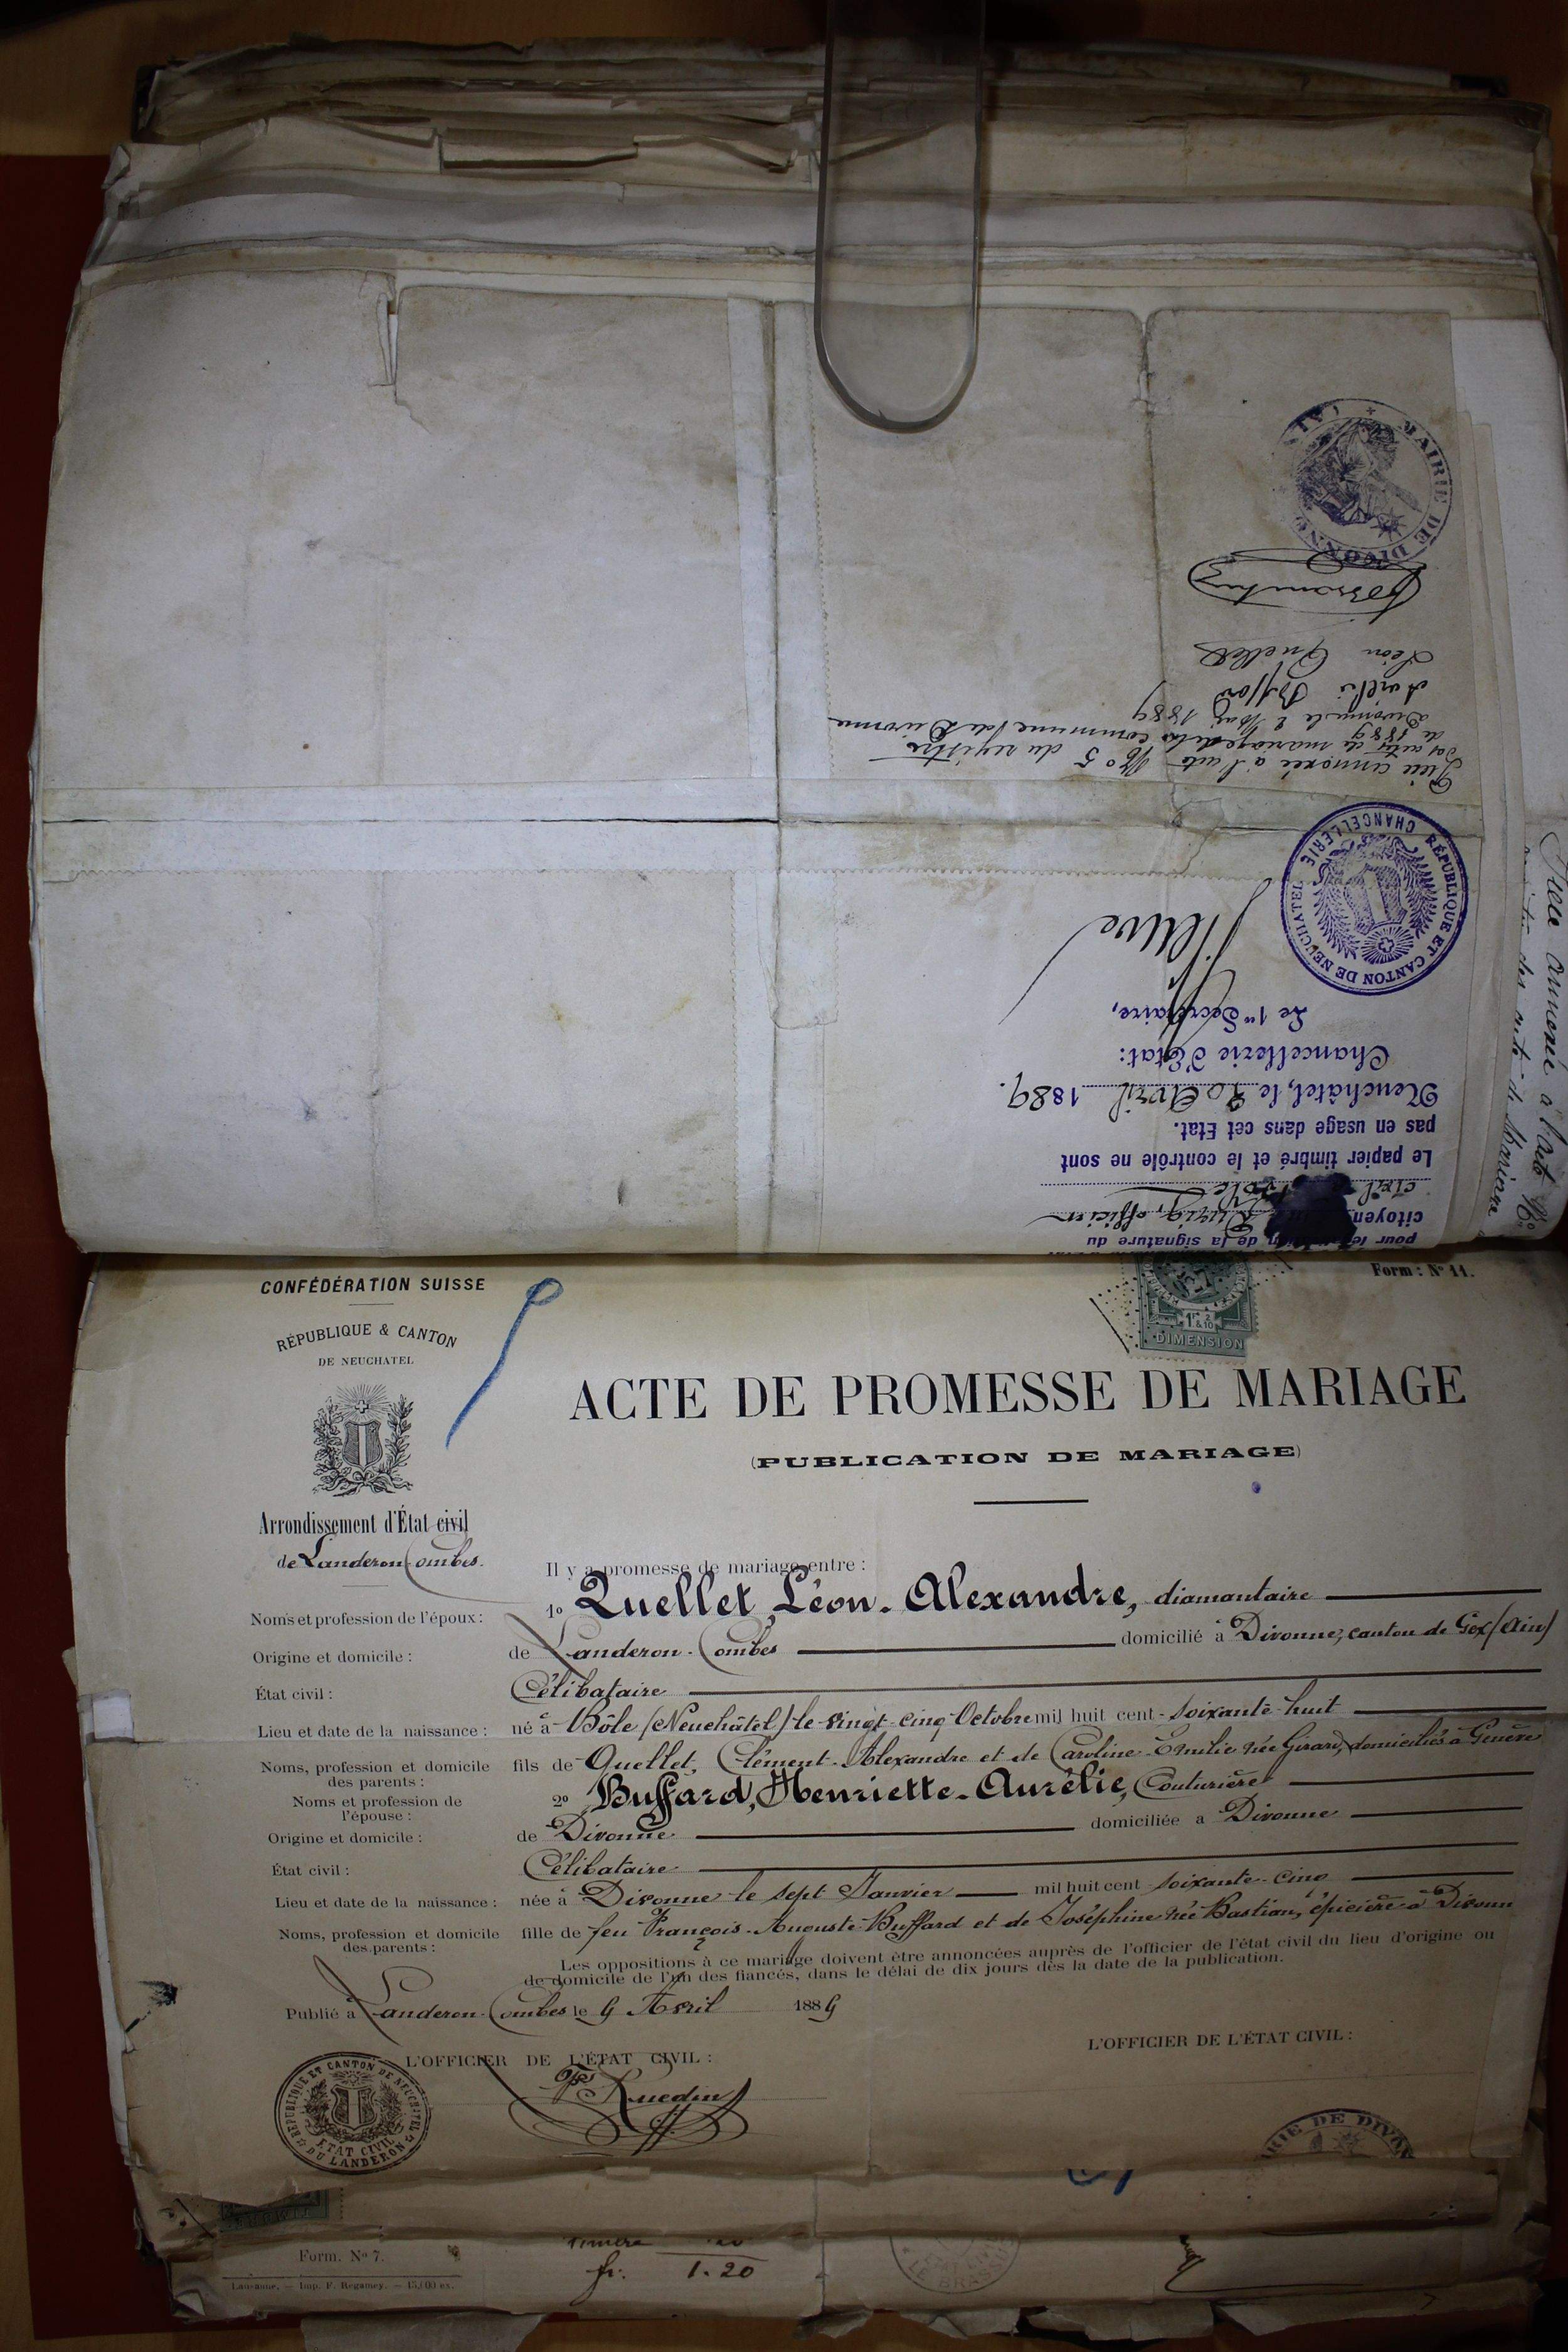 MAIRIE DE DIVONNE (AIN)
Léon Quellet
Aurélie Buffard
Divonne le 2 Mai 1889
de 1889
des actes de mariage de la commune de Divonne
Pièce annexée à l'acte No 5 du registre
RÉPUBLIQUE ET CANTON DE NEUCHATEL
CHANCELLERIE
Le 1er Secrétaire,
Chancellerie d'État:
Neuchâtel, le 20 Avril 1889.
pas en usage dans cet Etat.
Le papier timbré et le contrôle ne sont
civil
citoyen officier
de la signature du
Pièce annexée à l'acte No
CONFÉDÉRATION SUISSE
Form: No 11.
RÉPUBLIQUE & CANTON
DE NEUCHATEL
DIMENSION
ACTE DE PROMESSE DE MARIAGE
(PUBLICATION DE MARIAGE)
Arrondissement d'État civil
de Landeron-Combes.
Il y a promesse de mariage entre:
Noms et profession de l'époux: 1o Quellet, Léon-Alexandre, diamantaire
Origine et domicile: de Landeron-Combes domicilié à Divonne, canton de Gex (Ain)
État civil: Célibataire
Lieu et date de la naissance: né à Bôle (Neuchâtel) le vingt-cinq Octobre mil huit cent soixante-huit
Noms, profession et domicile des parents: fils de Quellet, Clément-Alexandre et de Caroline-Emilie née Girard, domiciliés à Genève
Noms et profession de l'épouse: 2o Buffard, Henriette-Aurélie, Couturière
Origine et domicile: de Divonne domiciliée à Divonne
État civil: Célibataire
Lieu et date de la naissance: née à Divonne le sept Janvier mil huit cent soixante-cinq
Noms, profession et domicile des parents: fille de feu François-Auguste Buffard et de Joséphine née Bastian, épicière à Divonne
Les oppositions à ce mariage doivent être annoncées auprès de l'officier de l'état civil du lieu d'origine ou
de domicile de l'un des fiancés, dans le délai de dix jours dès la date de la publication.
Publié à Landeron-Combes le 9 Avril 1889
L'OFFICIER DE L'ÉTAT CIVIL:
L'OFFICIER DE L'ÉTAT CIVIL:
Ruedin
RÉPUBLIQUE ET CANTON DE NEUCHATEL
ETAT CIVIL
DU LANDERON
RIE DE DIVON
Form. No 7.
fr. 1.20
Lausanne. — Imp. F. Regamey. — 15,000 ex.